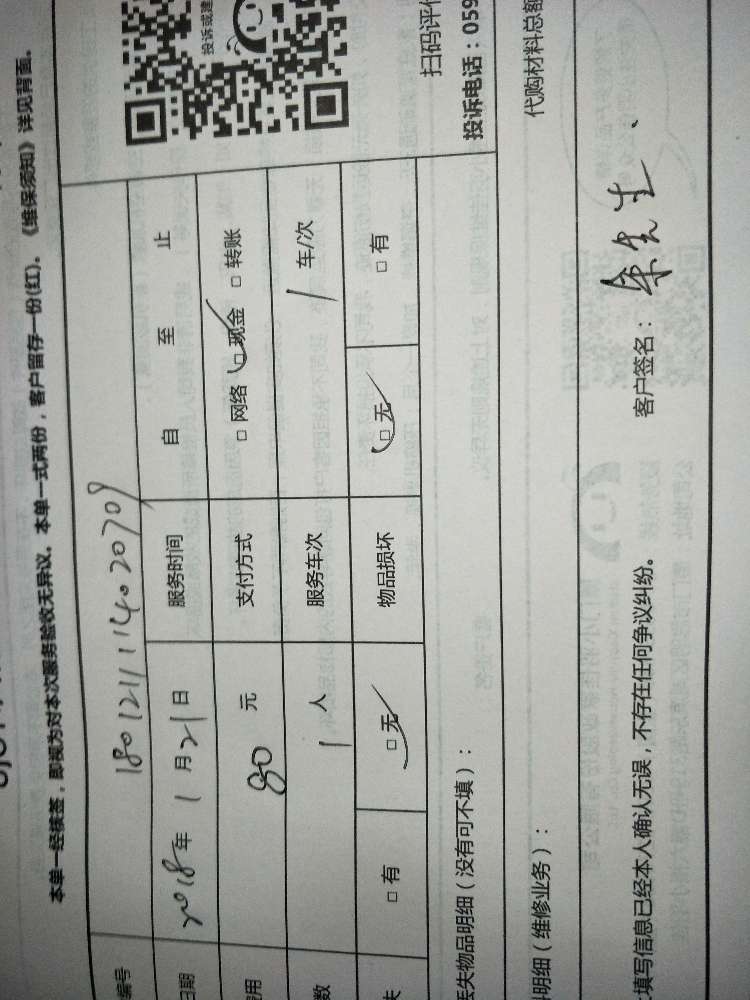 本单一经核签，即视为对本次服务验收无异议。本单一式两份，客户留存一份(红)。《维保须知》详见背面。
投诉或建
编号 180121114020709
日期 2018年 1月21日 服务时间 自 至 止
费用 80 元 支付方式 □网络 □现金 □转账
数 1 人 服务车次 1 车/次
失 □有 □无 物品损坏 □无 □有
扫码评价
投诉电话：059
丢失物品明细（没有可不填）：
明细（维修业务）： 代购材料总额
填写信息已经本人确认无误，不存在任何争议纠纷。 客户签名：余先生